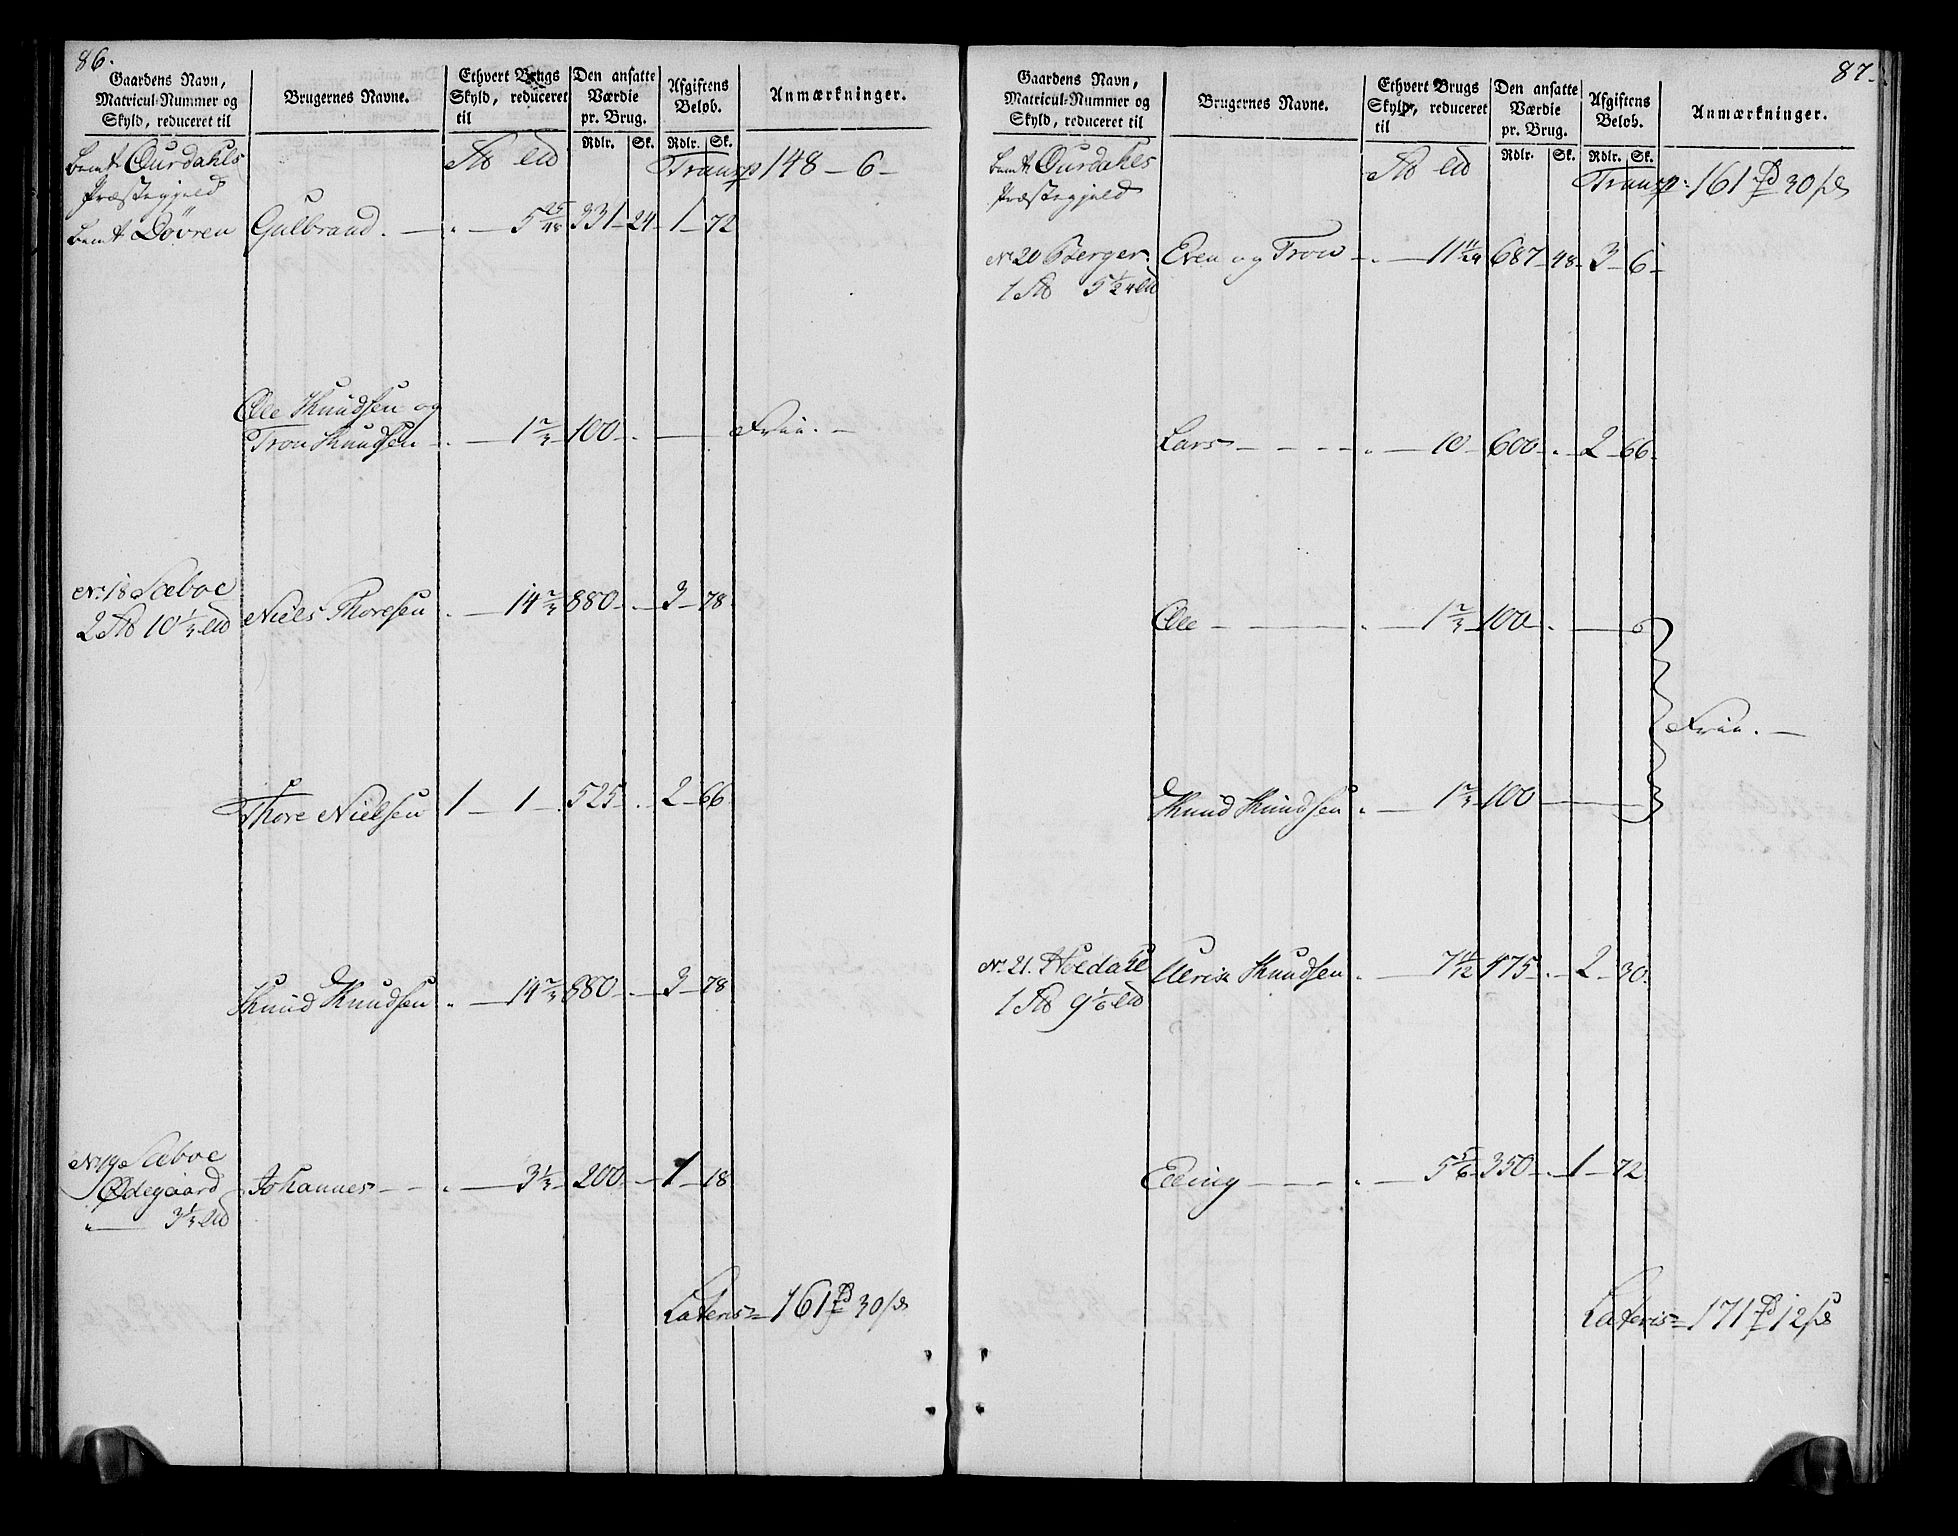 86.
Gaardens Navn, Matricul-Nummer og Skyld, reduceret til
Brugernes Navne.
Ethvert Brugs Skyld, reduceret til
Den ansatte Værdie pr. Brug.
Rdlr. Sk.
Afgiftens Beløb.
Rdlr. Sk.
Anmærkninger.
bemt Ourdahls Transp 148 - 6 -
Præstegjeld
bemt Døvren Gulbrand . - " - 5 25/48 331 - 24 - 1 - 72
Ole Knudsen og
Tron Knudsen - " - 1 2/3 - 100 - . - Frie. -
No. 18 Sæboe
2 10 1/3 Niels Thoresen . - 14 2/3 880 - . - 3 - 78
Thore Nielsen 1 - 1 - 525 - . 2 - 66
Knud Knudsen " - 14 2/3 880 - . - 3 - 78
No. 19 Sæboe
Ødegaard Johannes - - " - 3 1/3 - 200 - 1 - 18
" - 3 1/3
Lateris = 161 rd 30 s
87.
Gaardens Navn, Matricul-Nummer og Skyld, reduceret til
Brugernes Navne.
Ethvert Brugs Skyld, reduceret til
Den ansatte Værdie pr. Brug.
Rdlr. Sk.
Afgiftens Beløb.
Rdlr. Sk.
Anmærkninger.
bemt Ourdahls Transp: 161 rd 30 s
Præstegjeld
No. 20 Berger Even og Tron - " - 11 11/24 687 - 48 - 3 - 6 -
1 5 1/24
Lars - - - - " - 10 - 600 - " - 2 - 66 -
Ole - - - " - 1 2/3 - 100 - .
Frie. -
Knud Knudsen " - 1 2/3 100 -
No. 21. Holdahl Ulrik Knudsen . - 7 11/12 475 - . - 2 - 30.
1 9 1/6
Elling - - - " - 5 5/6 - 350 - . - 1 - 72
Lateris = 171 rd 12 s